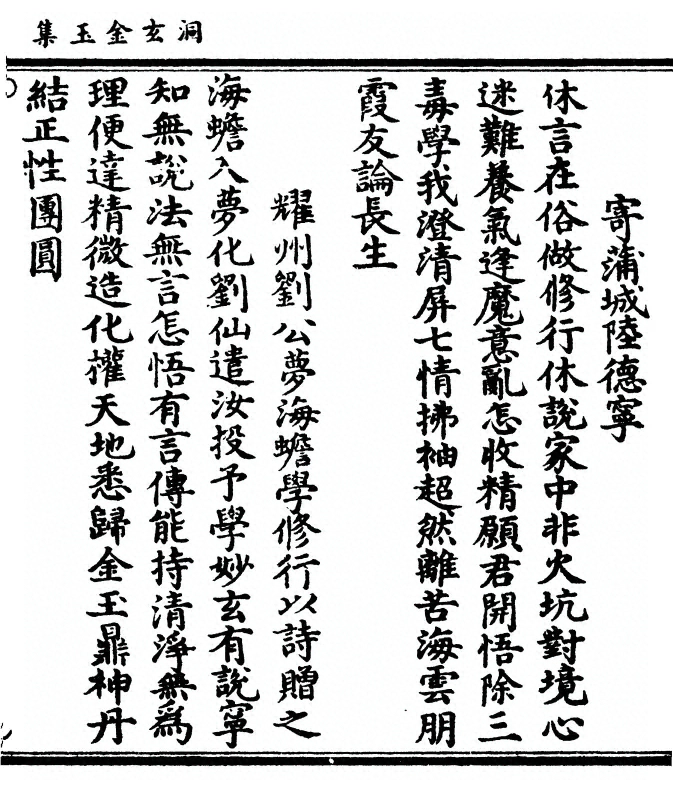 洞玄金玉集
寄蒲城陸德寧
休言在俗做修行休說家中非火坑對境心
迷難養氣逢魔意亂怎收精願君開悟除三
毒學我澄清屏七情拂袖超然離苦海雲朋
霞友論長生
耀州劉公夢海蟾學修行以詩贈之
海蟾入夢化劉仙遣汝投予學妙玄有說寧
知無說法無言怎悟有言傳能持清淨無爲
理便達精微造化權天地悉歸金玉鼎神丹
結正性團圓